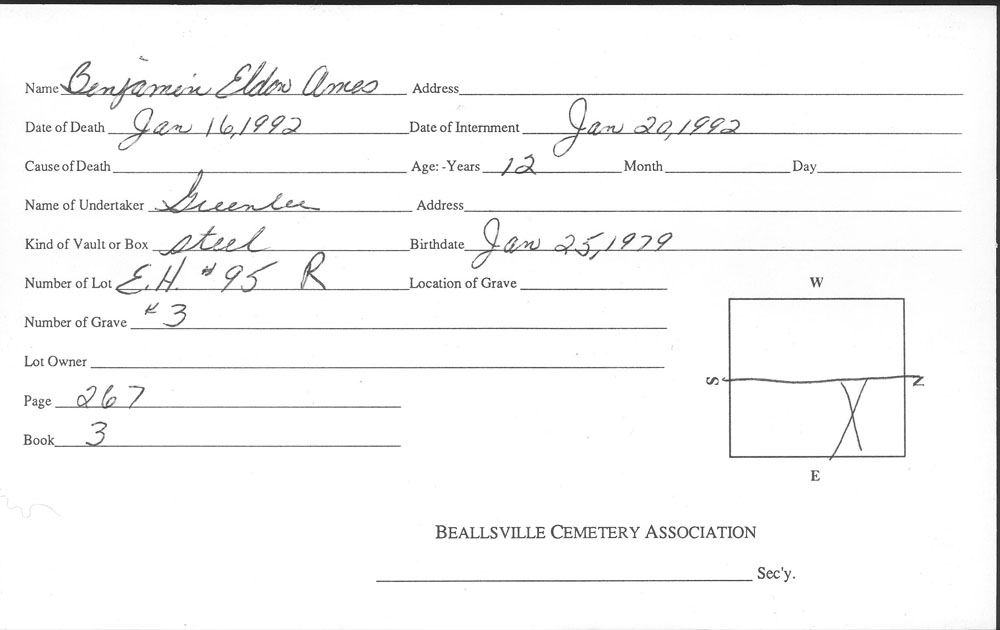 Name Benjamin Eldon Ames Address
Date of Death Jan 16, 1992 Date of Internment Jan 20, 1992
Cause of Death Age: -Years 12 Month Day
Name of Undertaker Greenlee Address
Kind of Vault or Box steel Birthdate Jan 25, 1979
Number of Lot E.H. #95 R Location of Grave
Number of Grave #3
Lot Owner
Page 267
Book 3
W
S N
E
BEALLSVILLE CEMETERY ASSOCIATION
Sec'y.